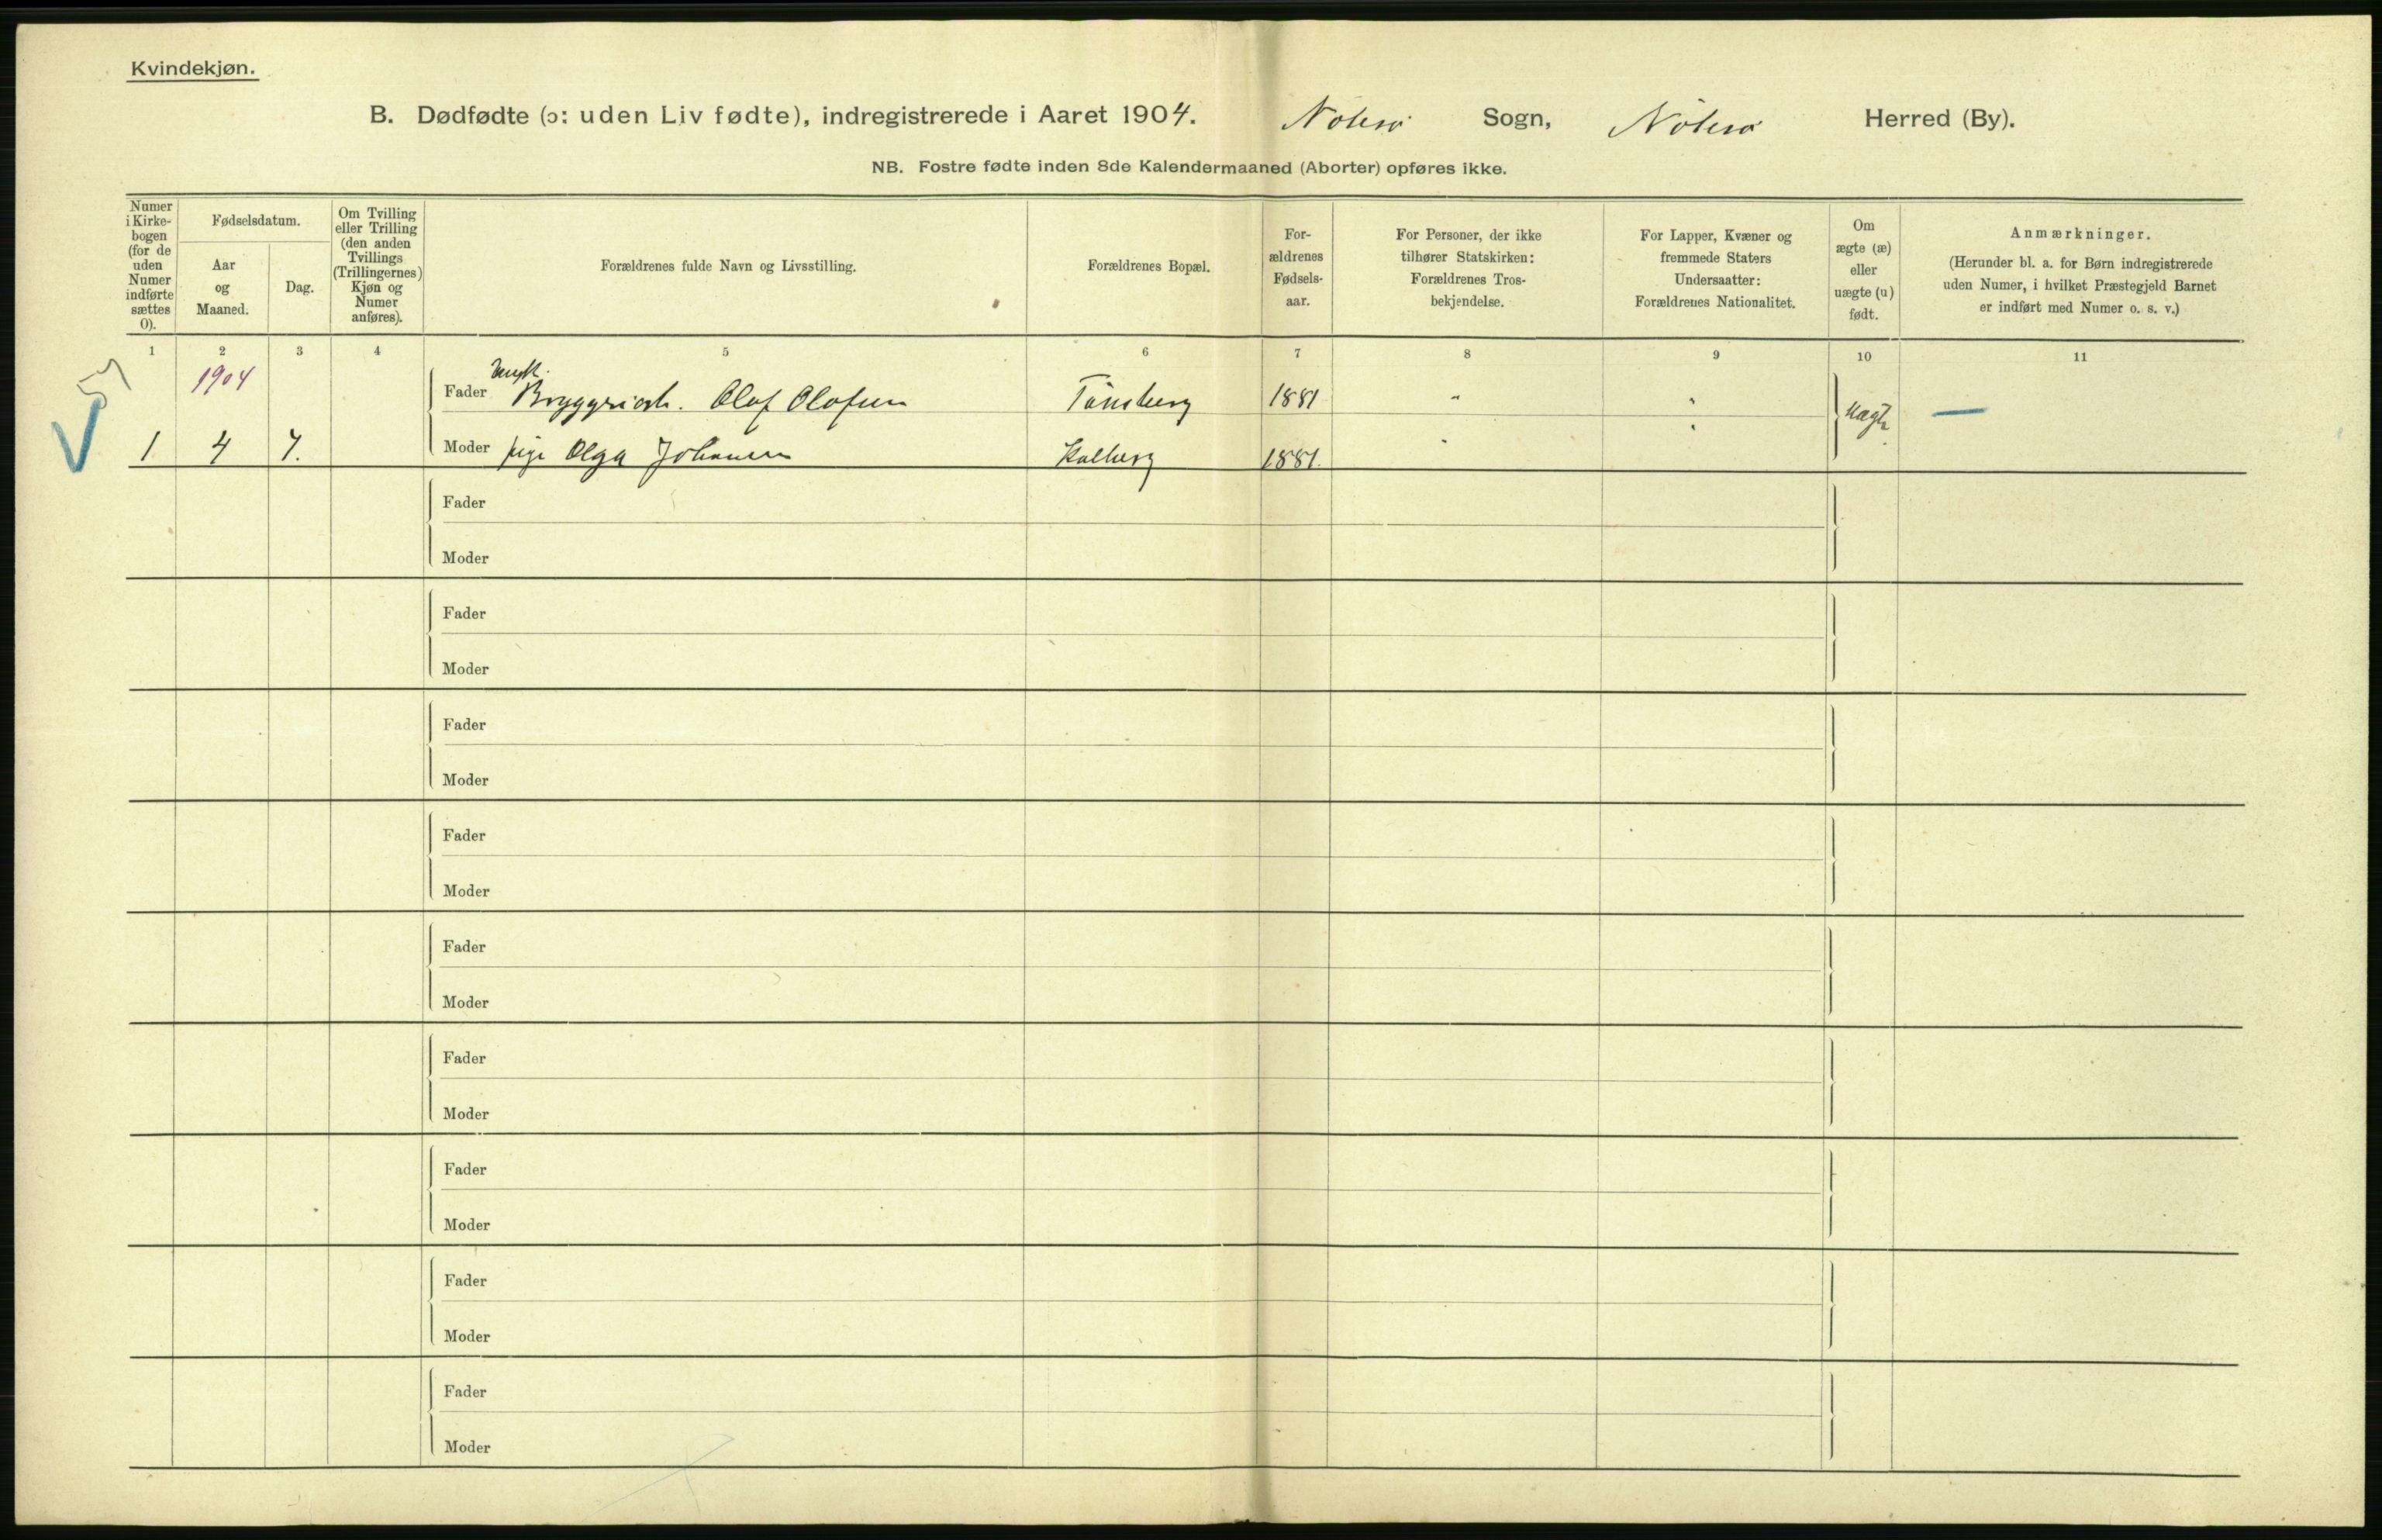 Kvindekjøn.
B. Dødfødte (ɔ: uden Liv fødte), indregistrerede i Aaret 1904. Nøterø Sogn, Nøterø Herred (By).
NB. Fostre fødte inden 8de Kalendermaaned (Aborter) opføres ikke.
Numer i Kirke-bogen (for de uden Numer indførte sættes 0).
Fødselsdatum.
Aar og Maaned.
Dag.
Om Tvilling eller Trilling (den anden Tvillings (Trillingernes) Kjøn og Numer anføres).
Forældrenes fulde Navn og Livsstilling.
Forældrenes Bopæl.
For-ældrenes Fødsels-aar.
For Personer, der ikke tilhører Statskirken: Forældrenes Tros-bekjendelse.
For Lapper, Kvæner og fremmede Staters Undersaatter: Forældrenes Nationalitet.
Om ægte (æ) eller uægte (u) født.
Anmærkninger.
(Herunder bl. a. for Børn indregistrerede uden Numer, i hvilket Præstegjeld Barnet er indført med Numer o. s. v.)
1 2 3 4 5 6 7 8 9 10 11
1904
Ungk.
Fader Bryggeriarb. Olaf Olafsen Tønsberg 1881 " " uægte —
1 4 7. Moder pige Olga Johansen Kalberg 1881. " "
Fader
Moder
Fader
Moder
Fader
Moder
Fader
Moder
Fader
Moder
Fader
Moder
Fader
Moder
Fader
Moder
Fader
Moder